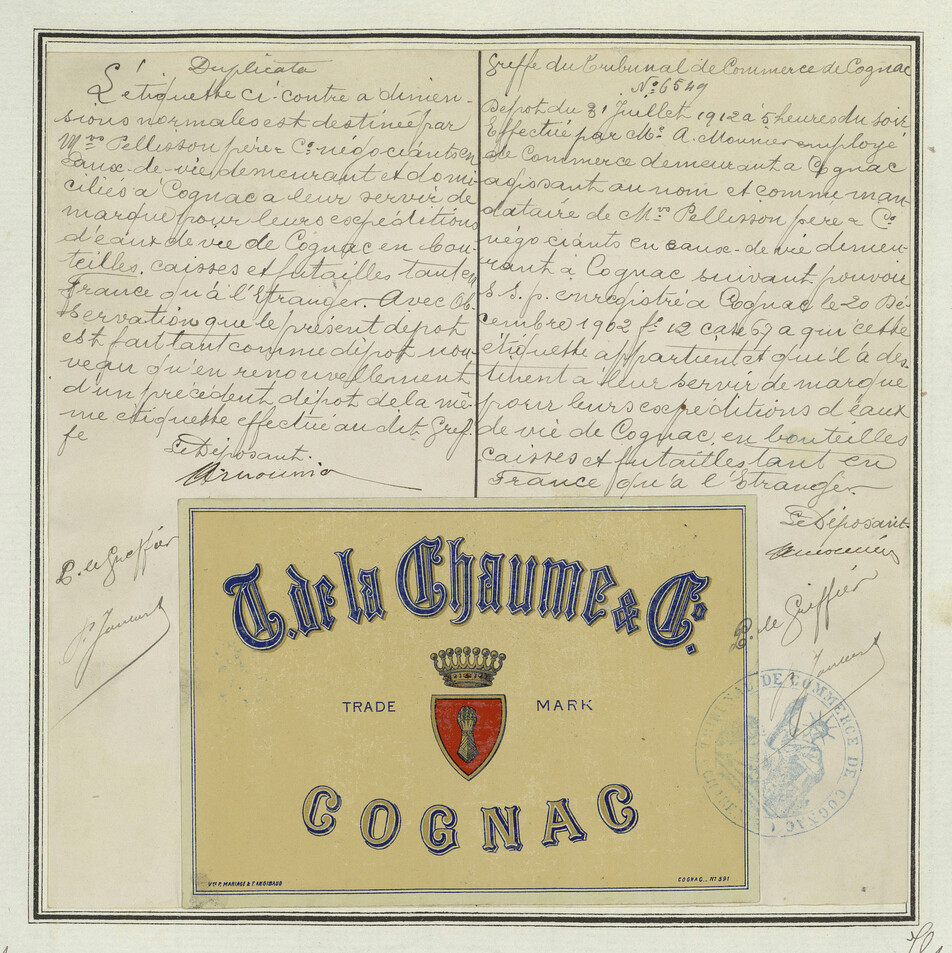 Duplicata
L'étiquette ci-contre a dimen-
sions normales est destinée par
Mrs Pellisson père & Co négociants en
eaux-de-vie demeurant et domi-
ciliés à Cognac a leur servir de
marque pour leurs expéditions
d'eaux de vie de Cognac en bou-
teilles, caisses et futailles tant en
France qu'à l'Etranger. Avec Ob-
servation que le présent dépot
est fait tant comme dépot nou-
veau qu'en renouvellement
d'un précédent dépot de la mê-
me etiquette effectué au dit Gref-
fe
Le Déposant.
P. le Greffier
Greffe du Tribunal de Commerce de Cognac
No 6549
Dépot du 31 Juillet 1912 à 5 heures du soir
Effectué par Mr A. Mounier employé
de Commerce demeurant a Cognac
agissant au nom et comme man-
dataire de Mrs Pellisson pere & Co
négociants en eaux-de-vie demeu-
rant à Cognac suivant pouvoir
S. S. p. enregistré a Cognac le 20 Dé-
cembre 1902 fo 12 case 67 a qui cette
étiquette appartient et qu'il à des-
tinent a leur servir de marque
pour leurs expéditions d'eaux
de vie de Cognac en bouteilles
caisses et futailles tant en
France qu'à l'Etranger.
Le Déposant.
P. le Greffier
T. de la Chaume & Co.
TRADE MARK
COGNAC
Vve F. MARIAGE & F. ANGIBAUD
COGNAC., No 391
TRIBUNAL DE COMMERCE DE COGNAC